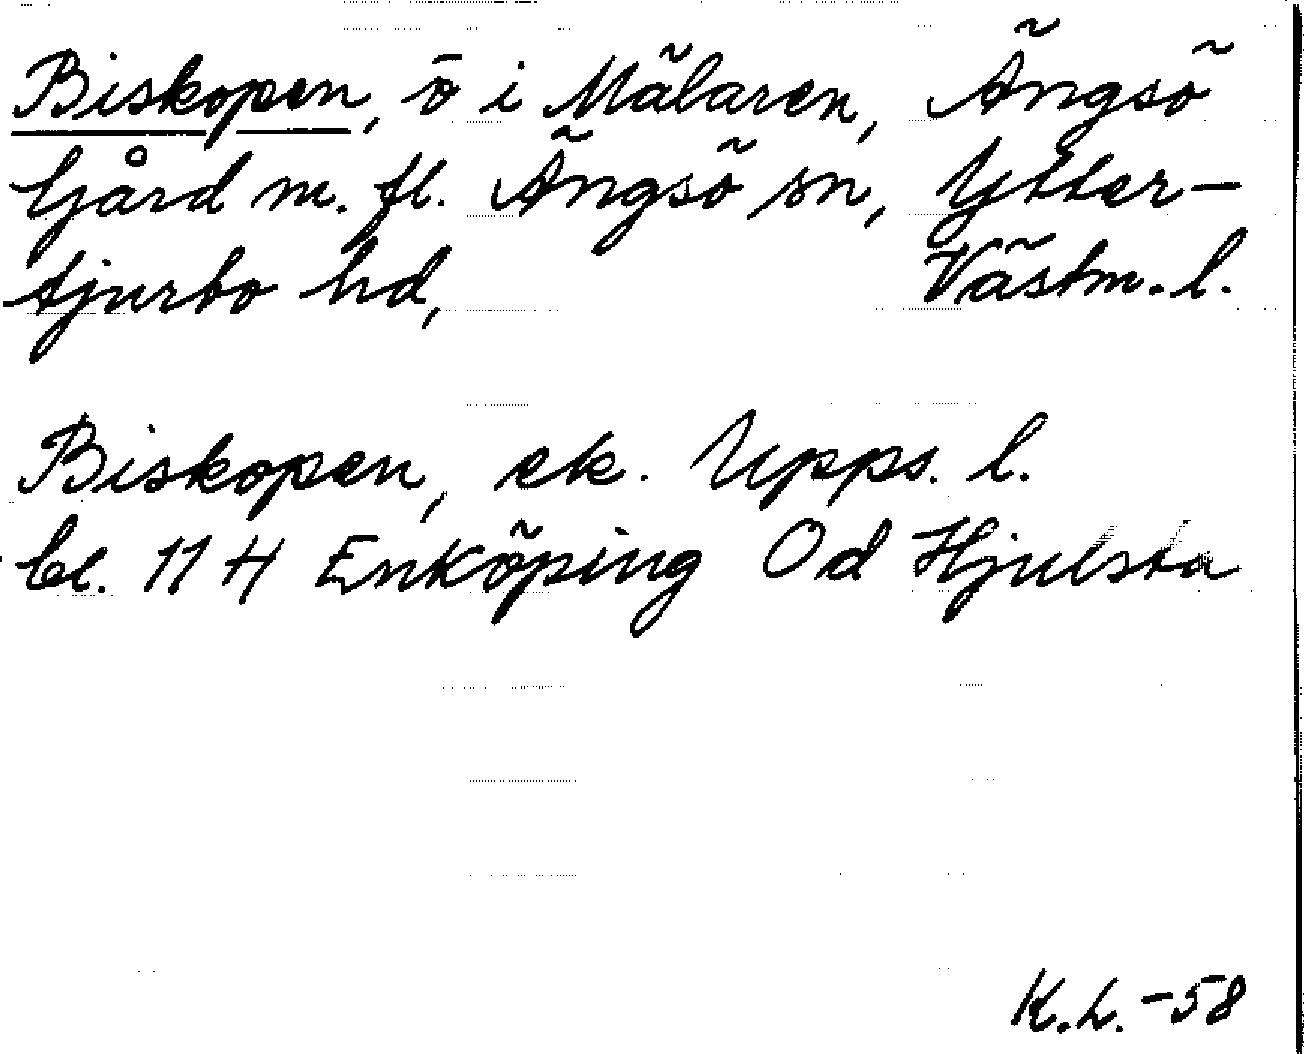 Biskopen, ö i Mälaren, Ängsö
Gård m. fl. Ängsö sn, Ytter-
tjurbo hd, Västm. l.
Biskopen, ek. Upps. l.
bl. 11 H Enköping Od Hjulsta
K.L. -58